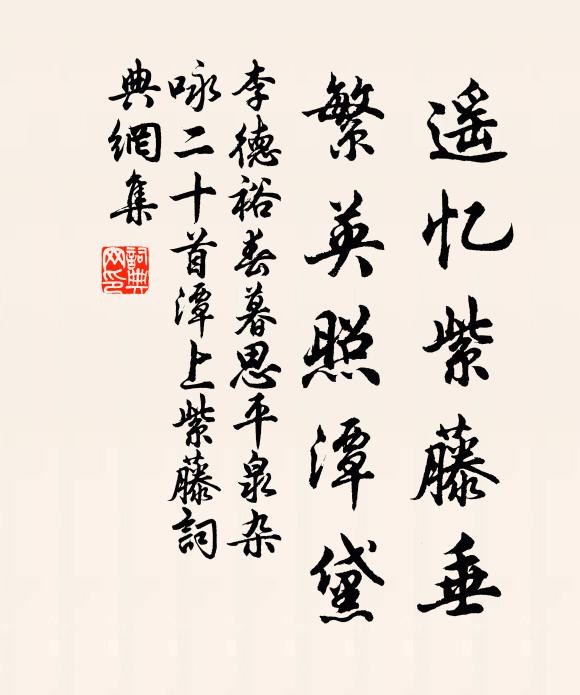 遥忆紫藤垂
繁英照潭黛
李德裕春暮思平泉杂
咏二十首潭上紫藤詞
典網集
詞典
网印